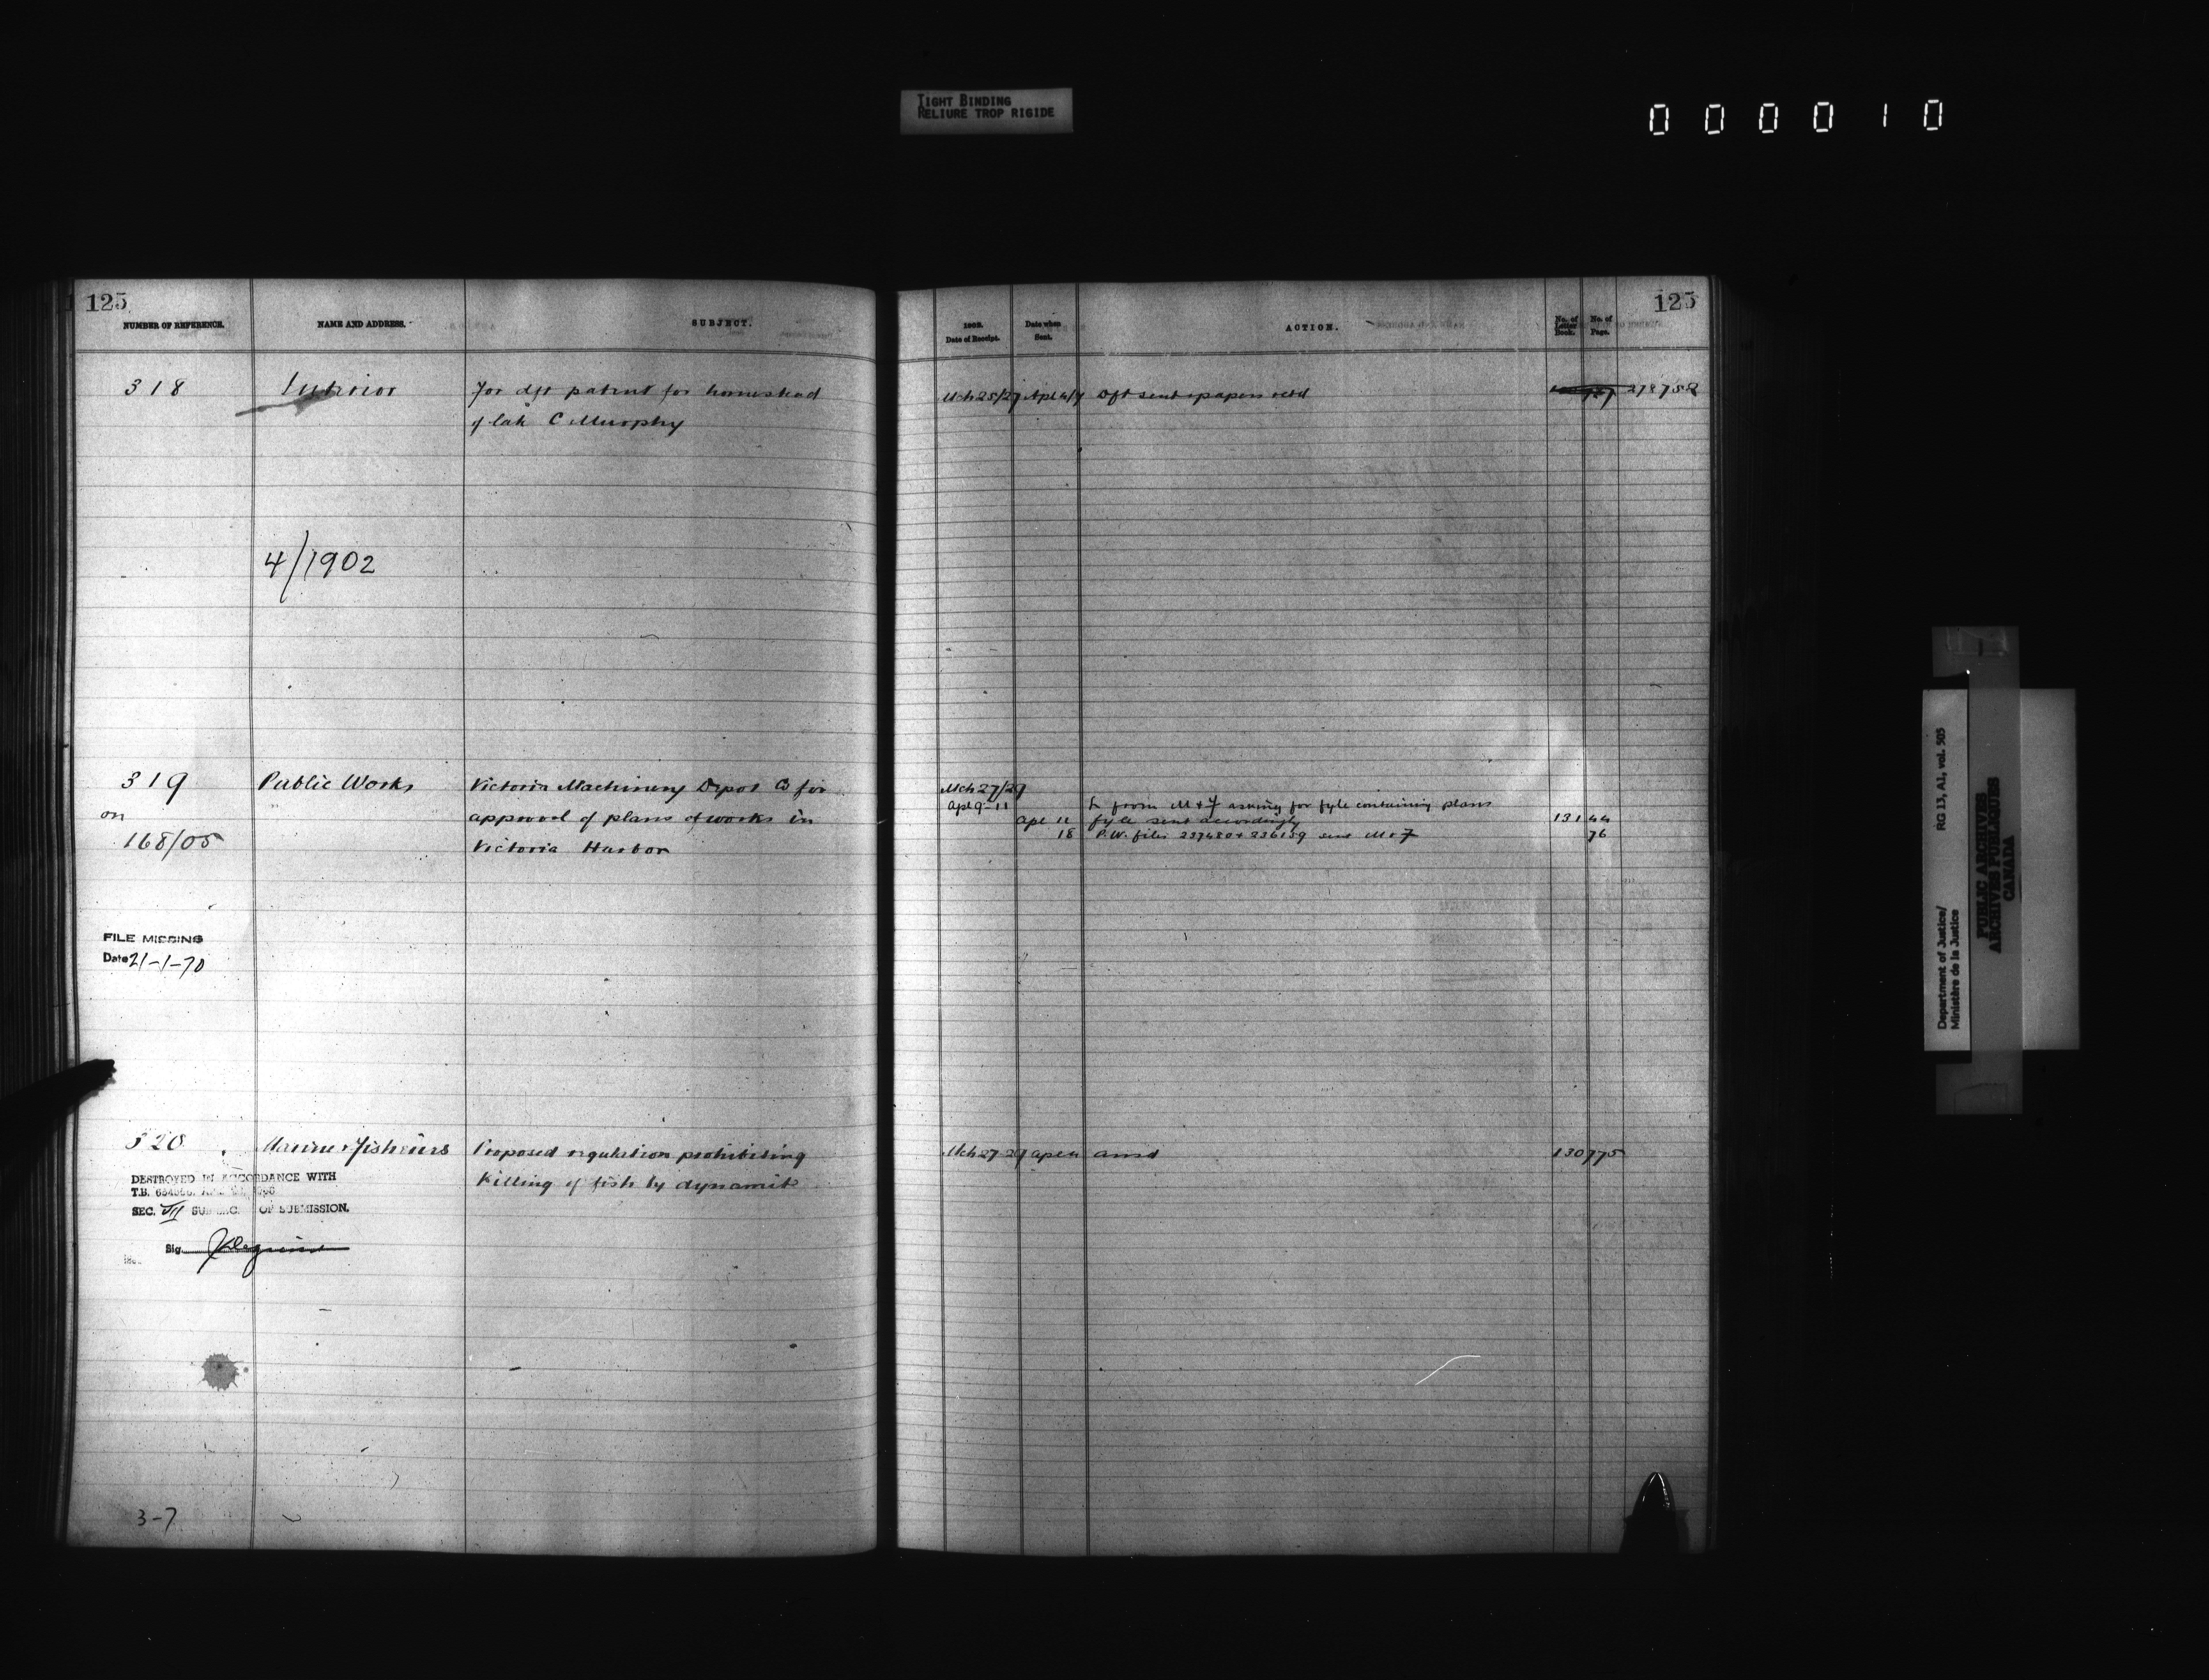 TIGHT BINDING
RELIURE TROP RIGIDE
000010
125
NUMBER OF REFERENCE.
NAME AND ADDRESS.
SUBJECT.
318
Interior
For dft patent for homestead
of late C Murphy
4/1902
319
on
168/05
Public Works
Victoria Machinery Depot Co for
approval of plans of works in
Victoria Harbor
FILE MISSING
Date 21-1-70
320
Marine & Fisheries
Proposed regulation prohibiting
killing of fish by dynamite
DESTROYED IN ACCORDANCE WITH
T.B.
SEC. VII OF SUBMISSION.
Sig.
3-7
125
1902.
Date of Receipt.
Date when
Sent.
ACTION.
No. of
Letter
Book.
No. of
Page.
Mch 25/27
Dft sent & papers retd
278758
Mch 27/29
Apl 9-11
L from M & F asking for fyle containing plans
Apl 11
fyle sent accordingly
131 44
18
P.W. files 237480 & 236159 sent M & F
76
Mch 27-29
ansd
130 775
Department of Justice/
Ministère de la Justice
RG 13, A1, vol. 505
PUBLIC ARCHIVES
ARCHIVES PUBLIQUES
CANADA